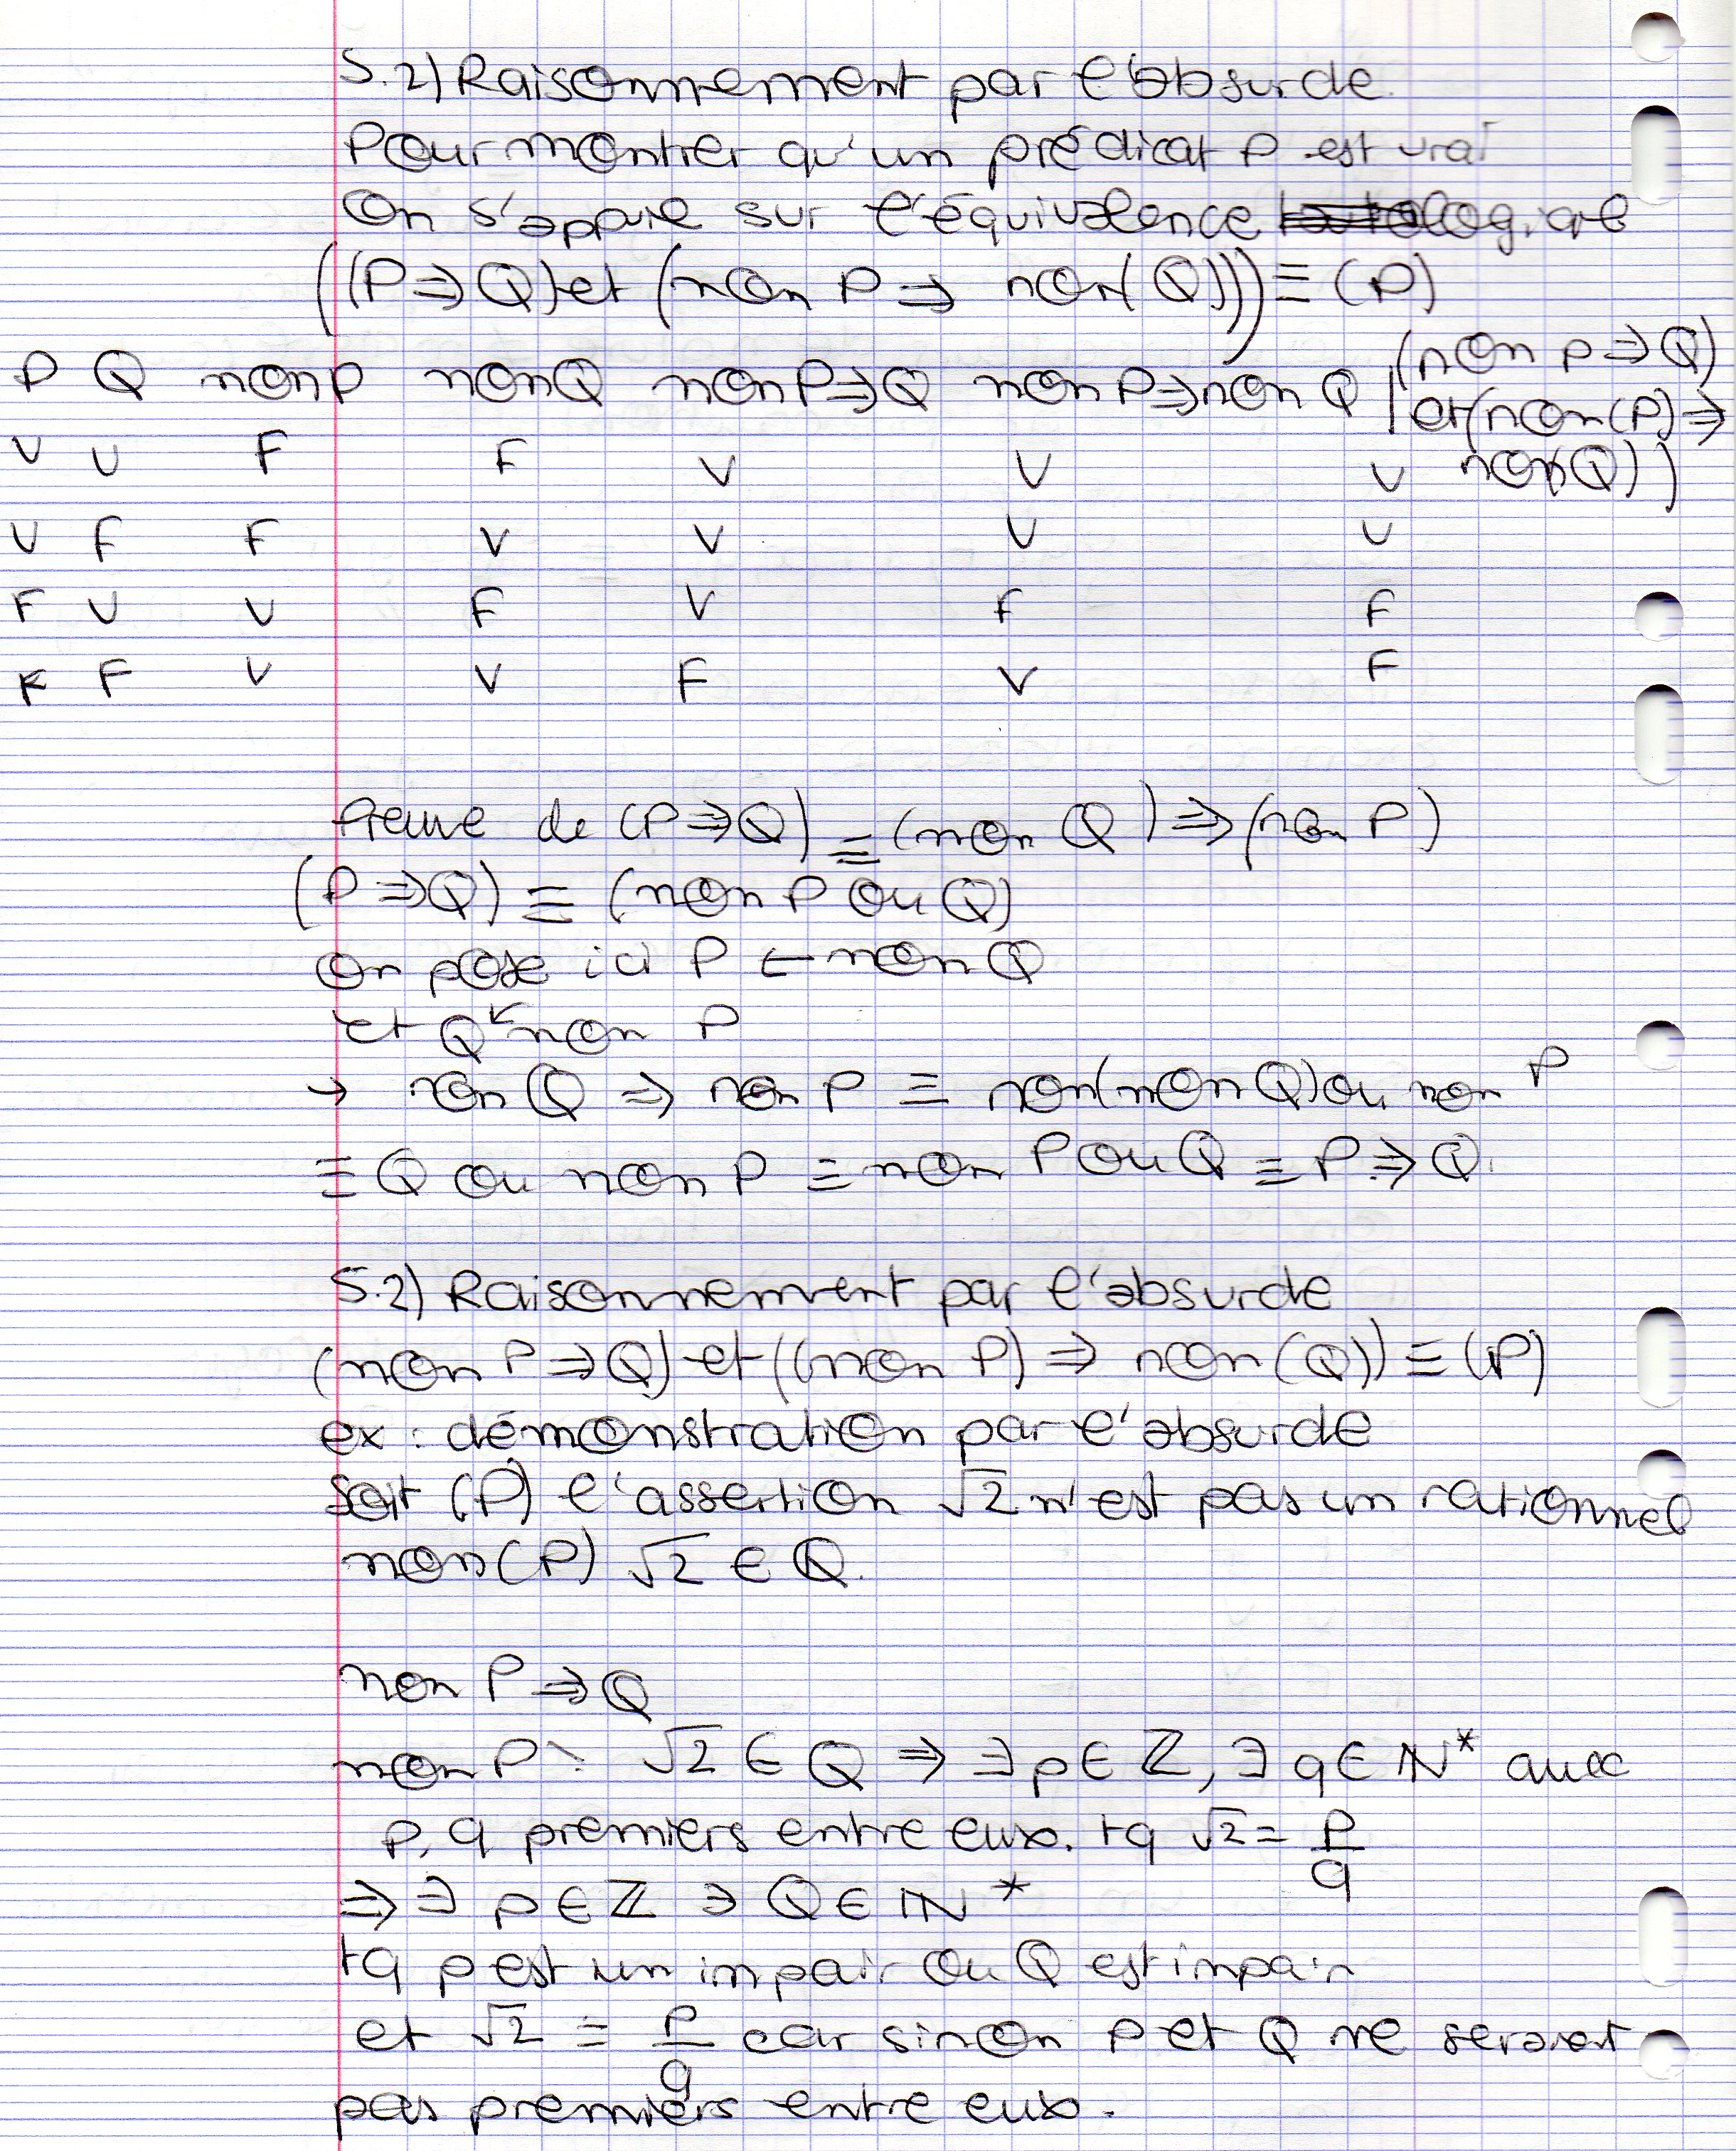 5.2) Raisonnement par l'absurde.
Pour montrer qu'un prédicat P est vrai
On s'appuie sur l'équivalence logique
((P ⇒ Q) et (non P ⇒ non(Q))) ≡ (P)
P Q non P non Q non P ⇒ Q non P ⇒ non Q | (non P ⇒ Q) et (non(P) ⇒ non(Q))
V V F F V V V
V F F V V V V
F V V F V F F
F F V V F V F
Preuve de (P ⇒ Q) ≡ (non Q) ⇒ (non P)
(P ⇒ Q) ≡ (non P ou Q)
on pose ici P ← non Q
et Q ← non P
→ non Q ⇒ non P ≡ non(non Q) ou non P
≡ Q ou non P ≡ non P ou Q ≡ P ⇒ Q.
5.2) Raisonnement par l'absurde
(non P ⇒ Q) et ((non P) ⇒ non (Q)) ≡ (P)
ex : démonstration par l'absurde
Soit (P) l'assertion √2 n'est pas un rationnel
non(P) √2 ∈ Q.
non P ⇒ Q
non P : √2 ∈ Q ⇒ ∃ p ∈ ℤ, ∃ q ∈ ℕ* avec
p, q premiers entre eux. tq √2 = p/q
⇒ ∃ p ∈ ℤ ∃ Q ∈ ℕ*
tq p est un impair ou Q est impair
et √2 = p/q car sinon p et Q ne seraient
pas premiers entre eux.